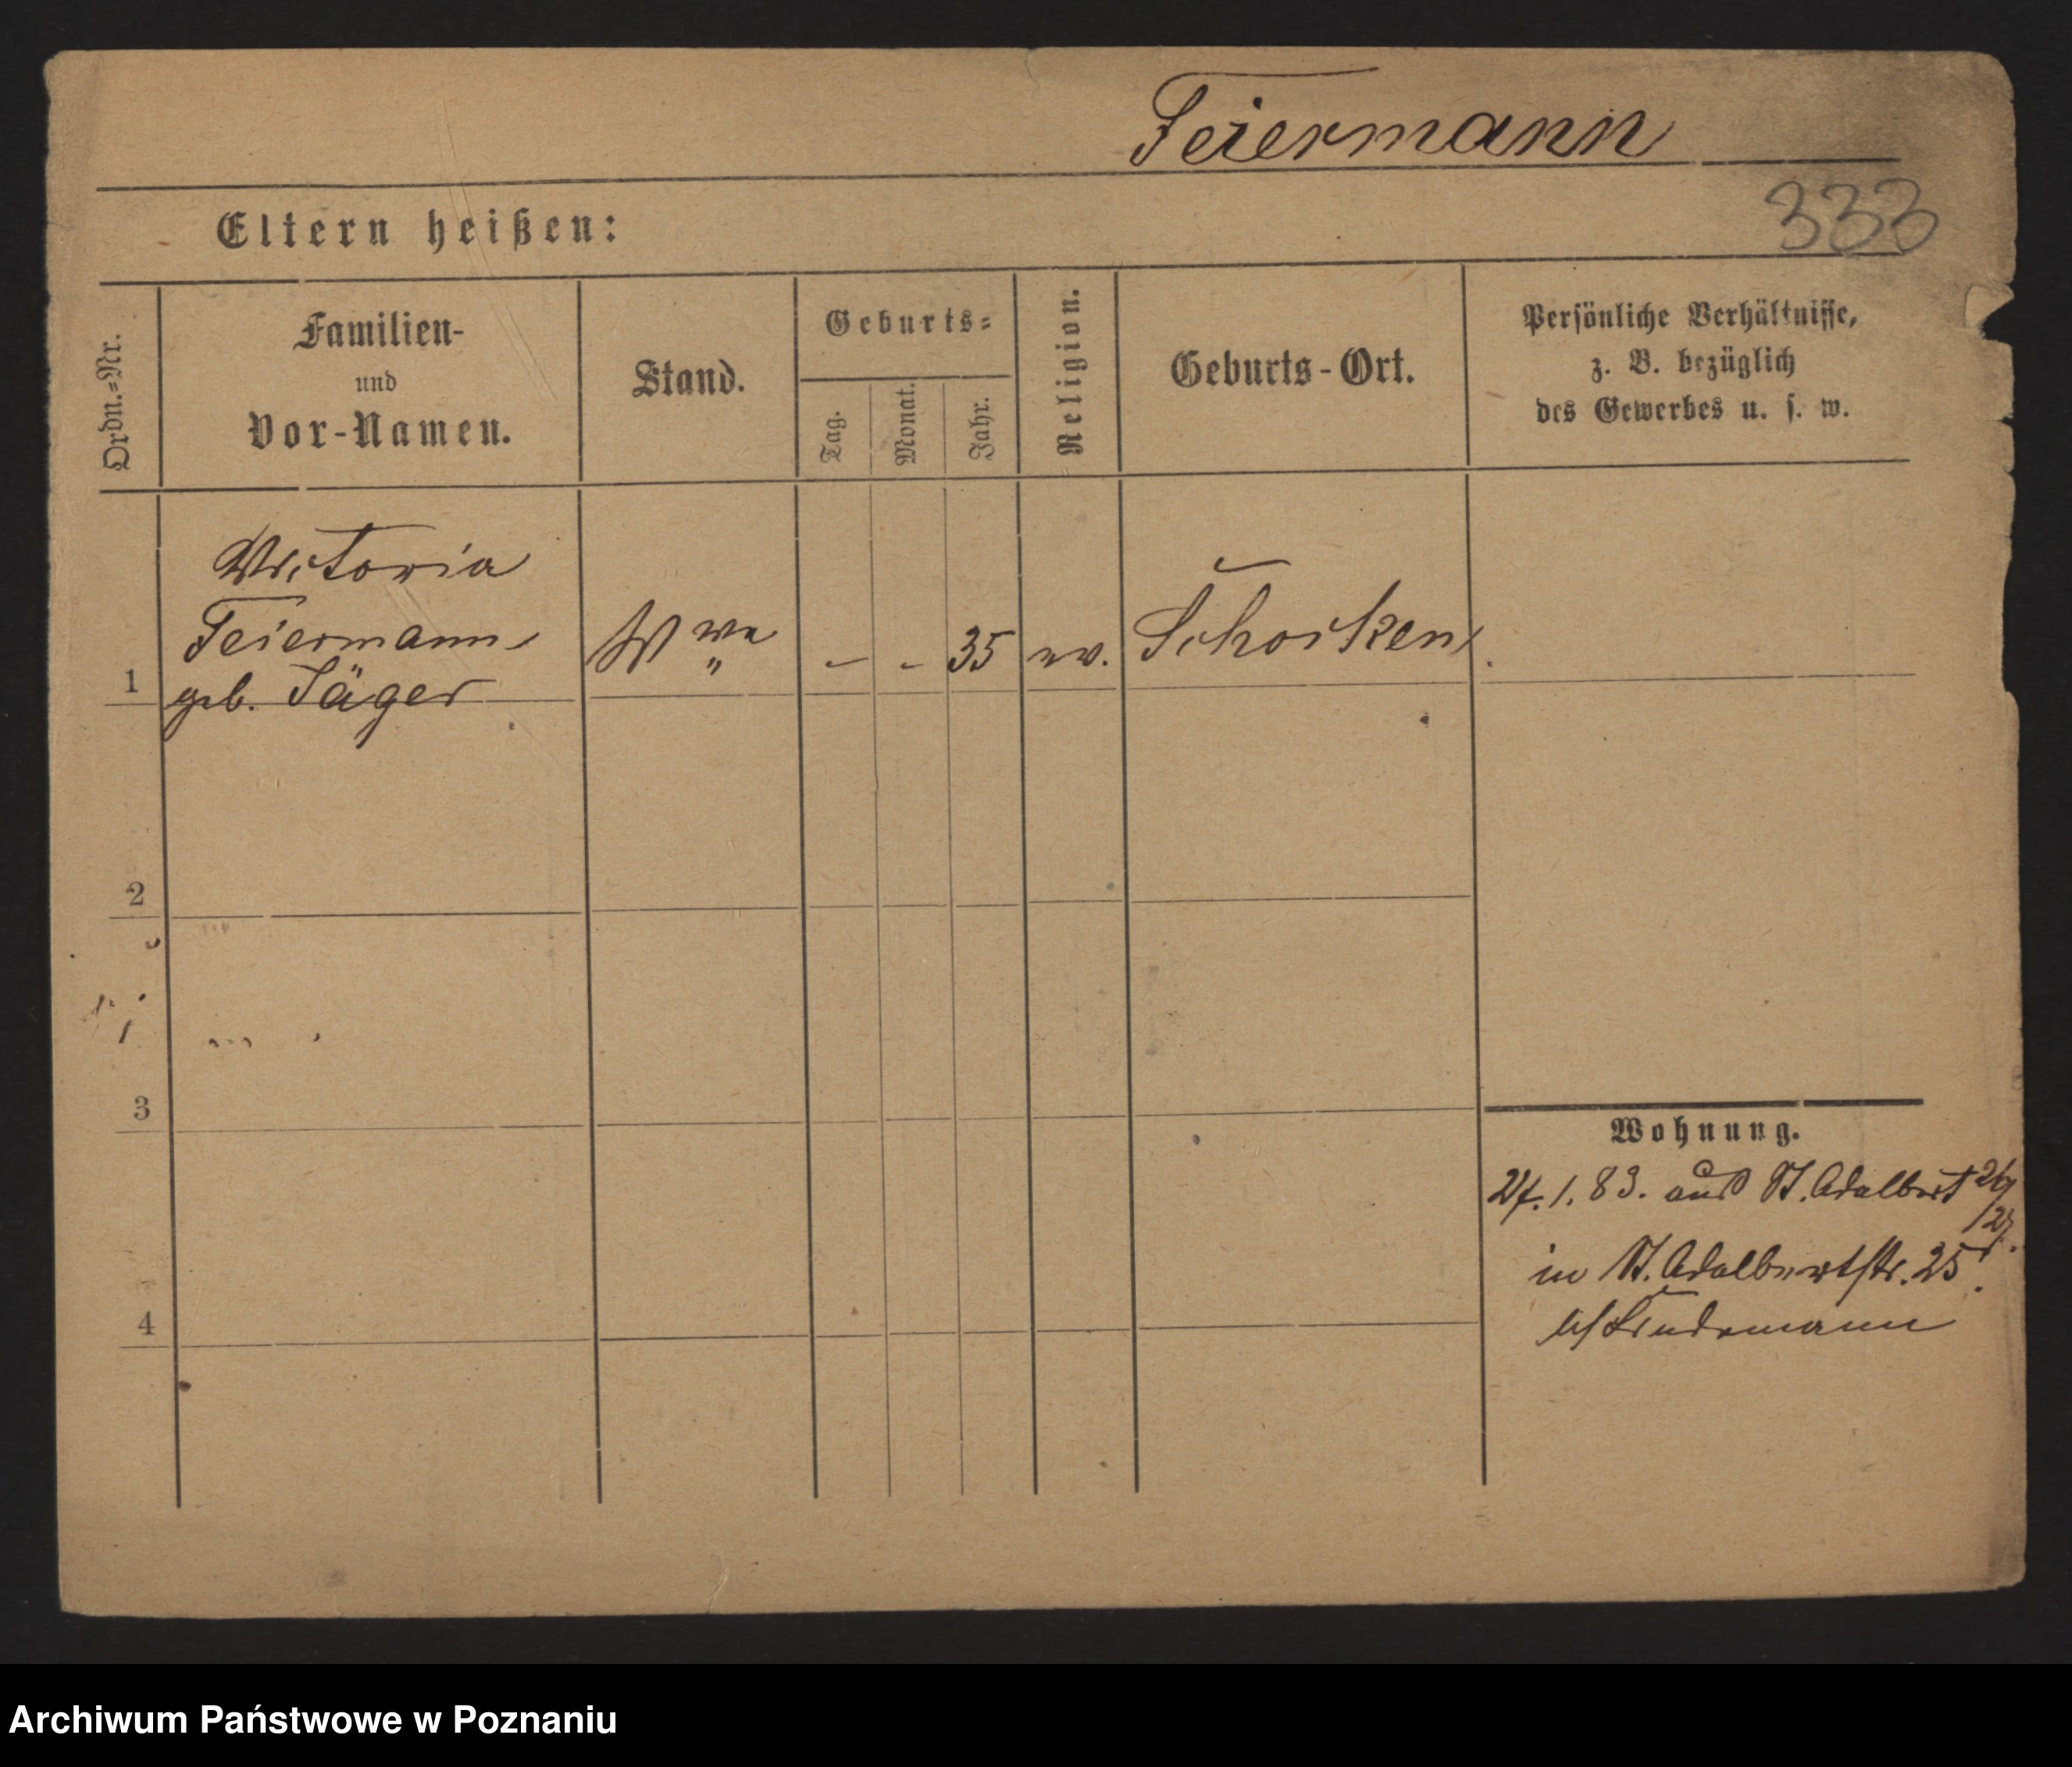 Feiermann
333
Eltern heißen:
Ordn.=Nr.
Familien-
und
Vor-Namen.
Stand.
Geburts=
Tag.
Monat.
Jahr.
Religion.
Geburts-Ort.
Persönliche Verhältnisse,
z. B. bezüglich
des Gewerbes u. s. w.
Victoria
Feiermann
geb. Jäger
1
Wwe
- - 35
ev.
Schocken
2
3
Wohnung.
27.1.83. aus St. Adalbert 26/
/27.
in St. Adalbertstr. 25.
b/ Lindemann
4
Archiwum Państwowe w Poznaniu